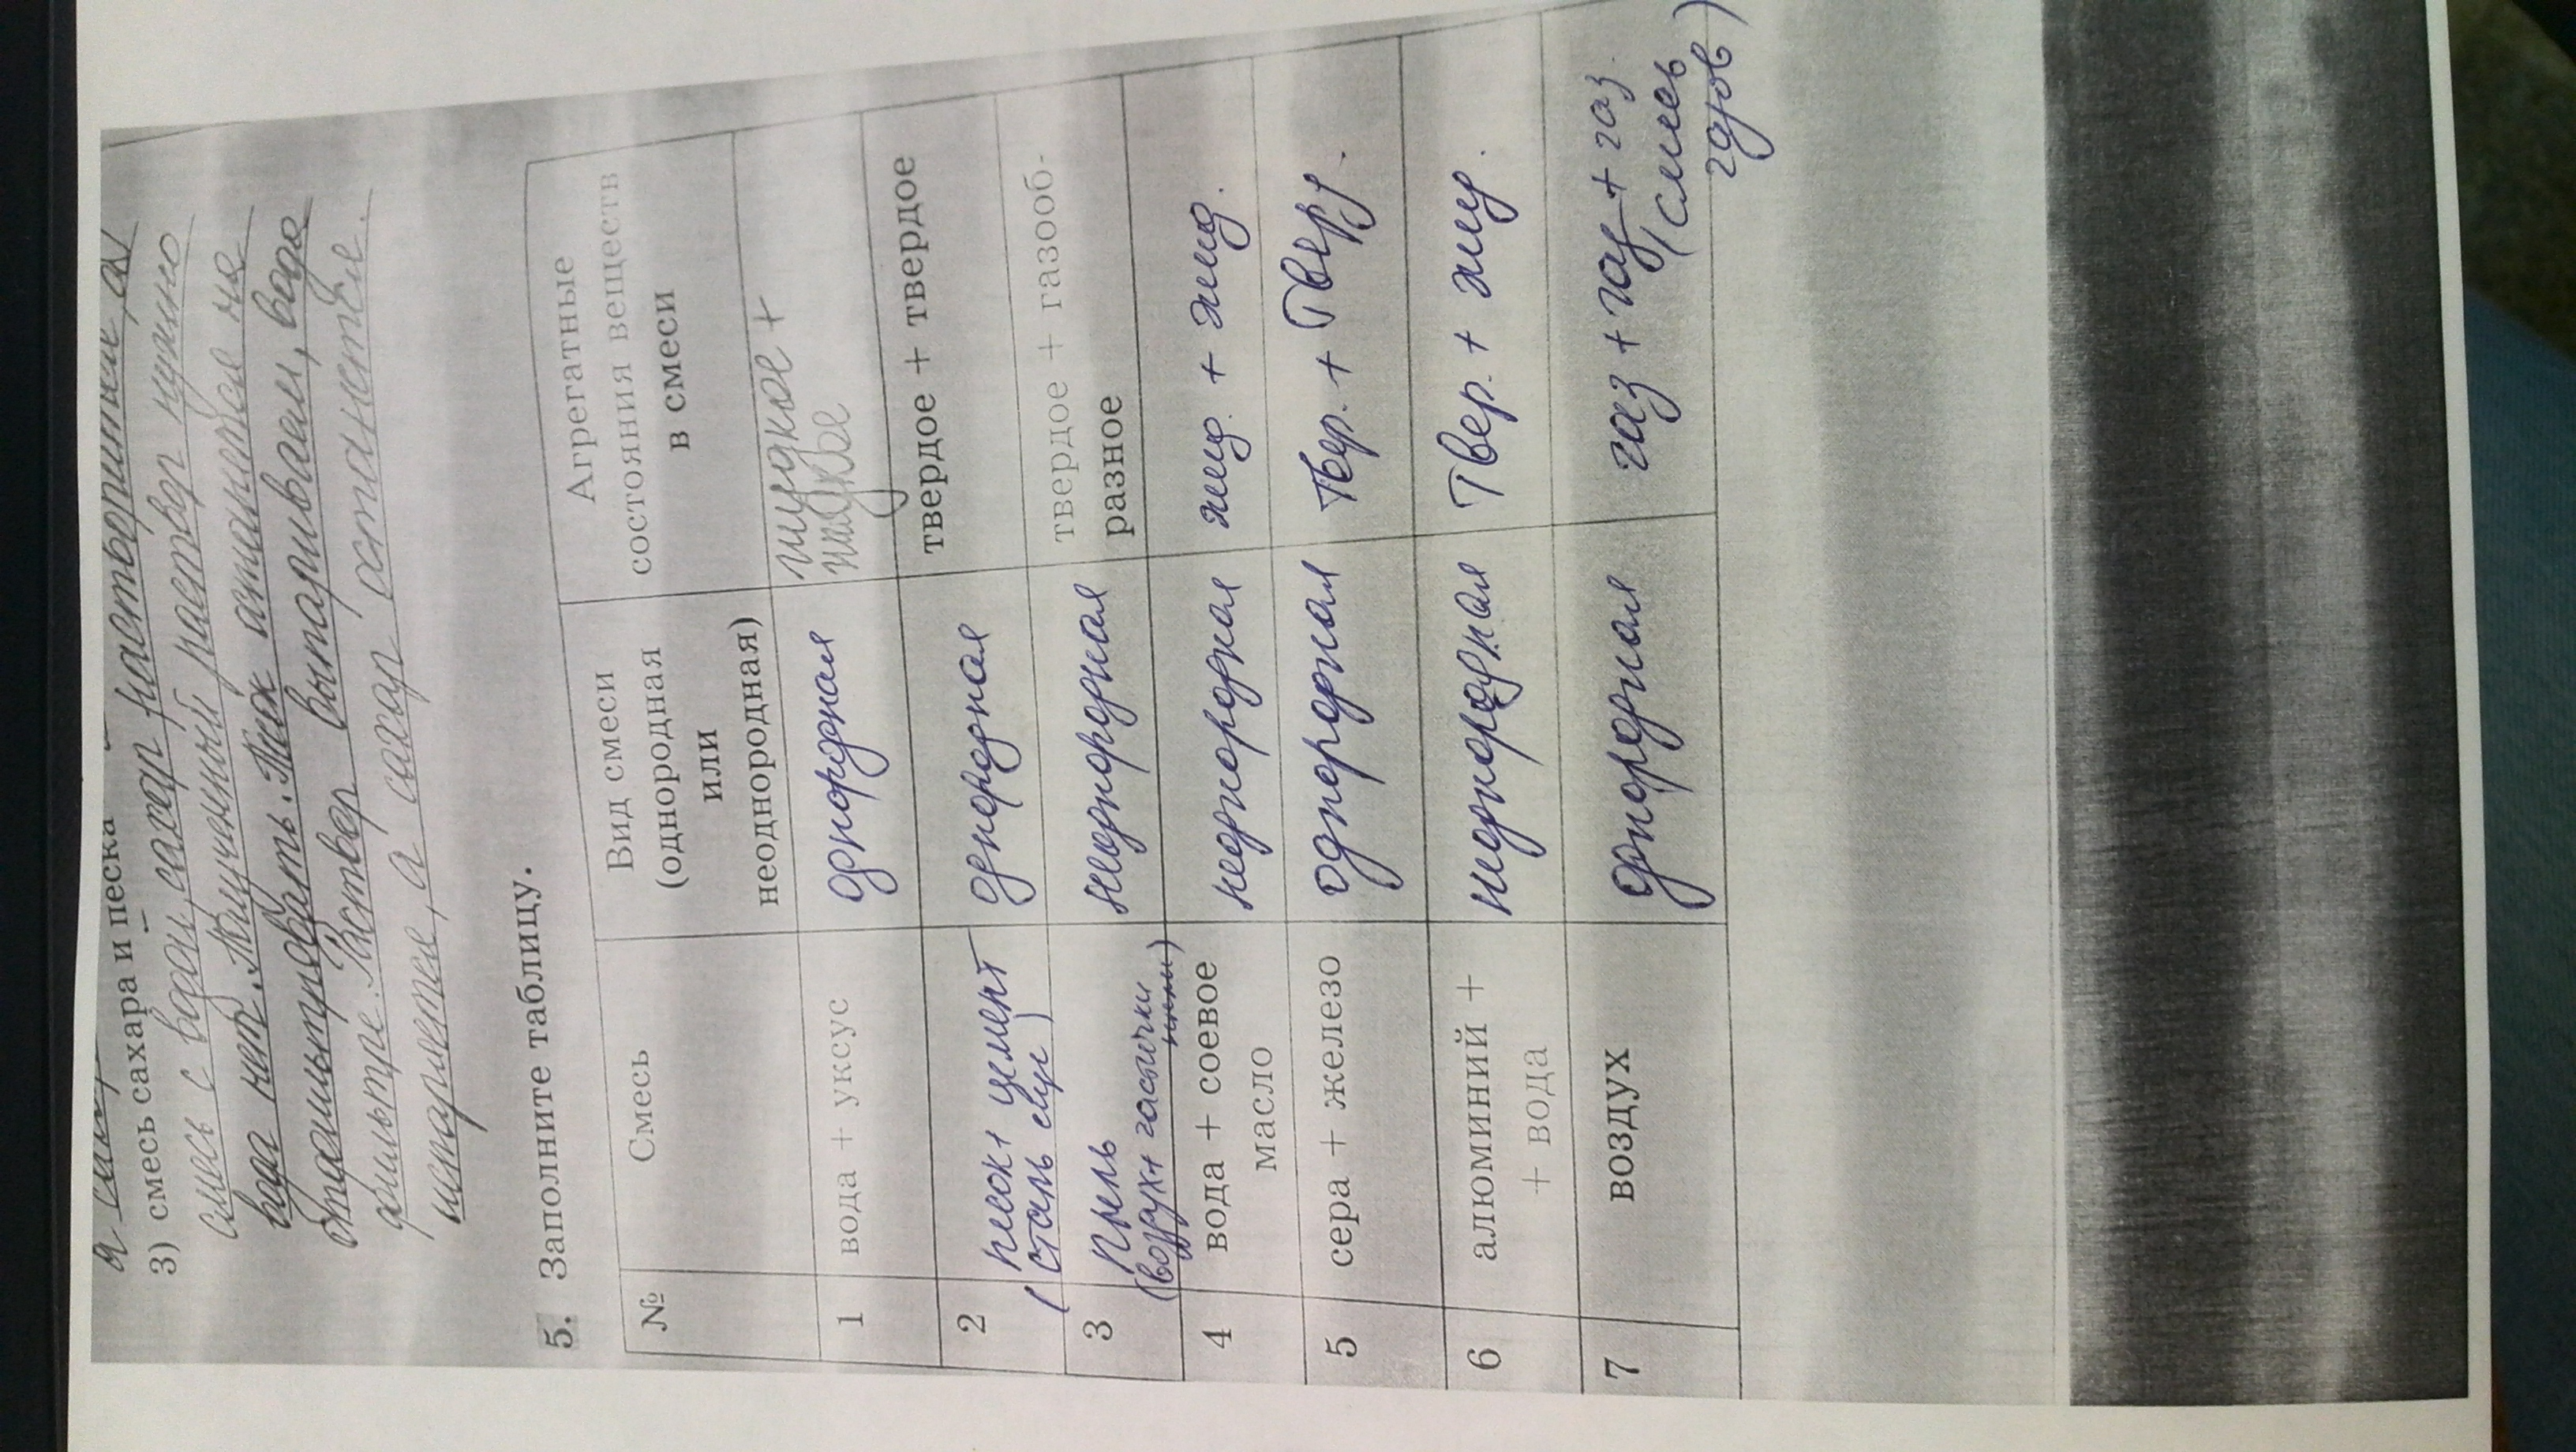 а сахар растворимые, а
3) смесь сахара и песка
смесь с водой, сахар раствор нужно
вода нет. Полученный раствор
отфильтровать. Песок останется на
фильтре. Раствор выпариваем, вода
испаряется, а сахар останется.
5. Заполните таблицу.
№ Смесь Вид смеси (однородная или неоднородная) Агрегатные состояния веществ в смеси
1 вода + уксус однородная жидкое +
жидкое
2 песок + цемент однородная твердое + твердое
(сталь еще)
3 Пыль неоднородная твердое + газооб-
(воздух + частички) разное
4 вода + соевое неоднородная жид. + жид.
масло
5 сера + железо однородная твер. + Тверд.
6 алюминий + неоднородная Твер. + жид.
+ вода
7 воздух однородная газ + газ + газ.
(смесь
газов)